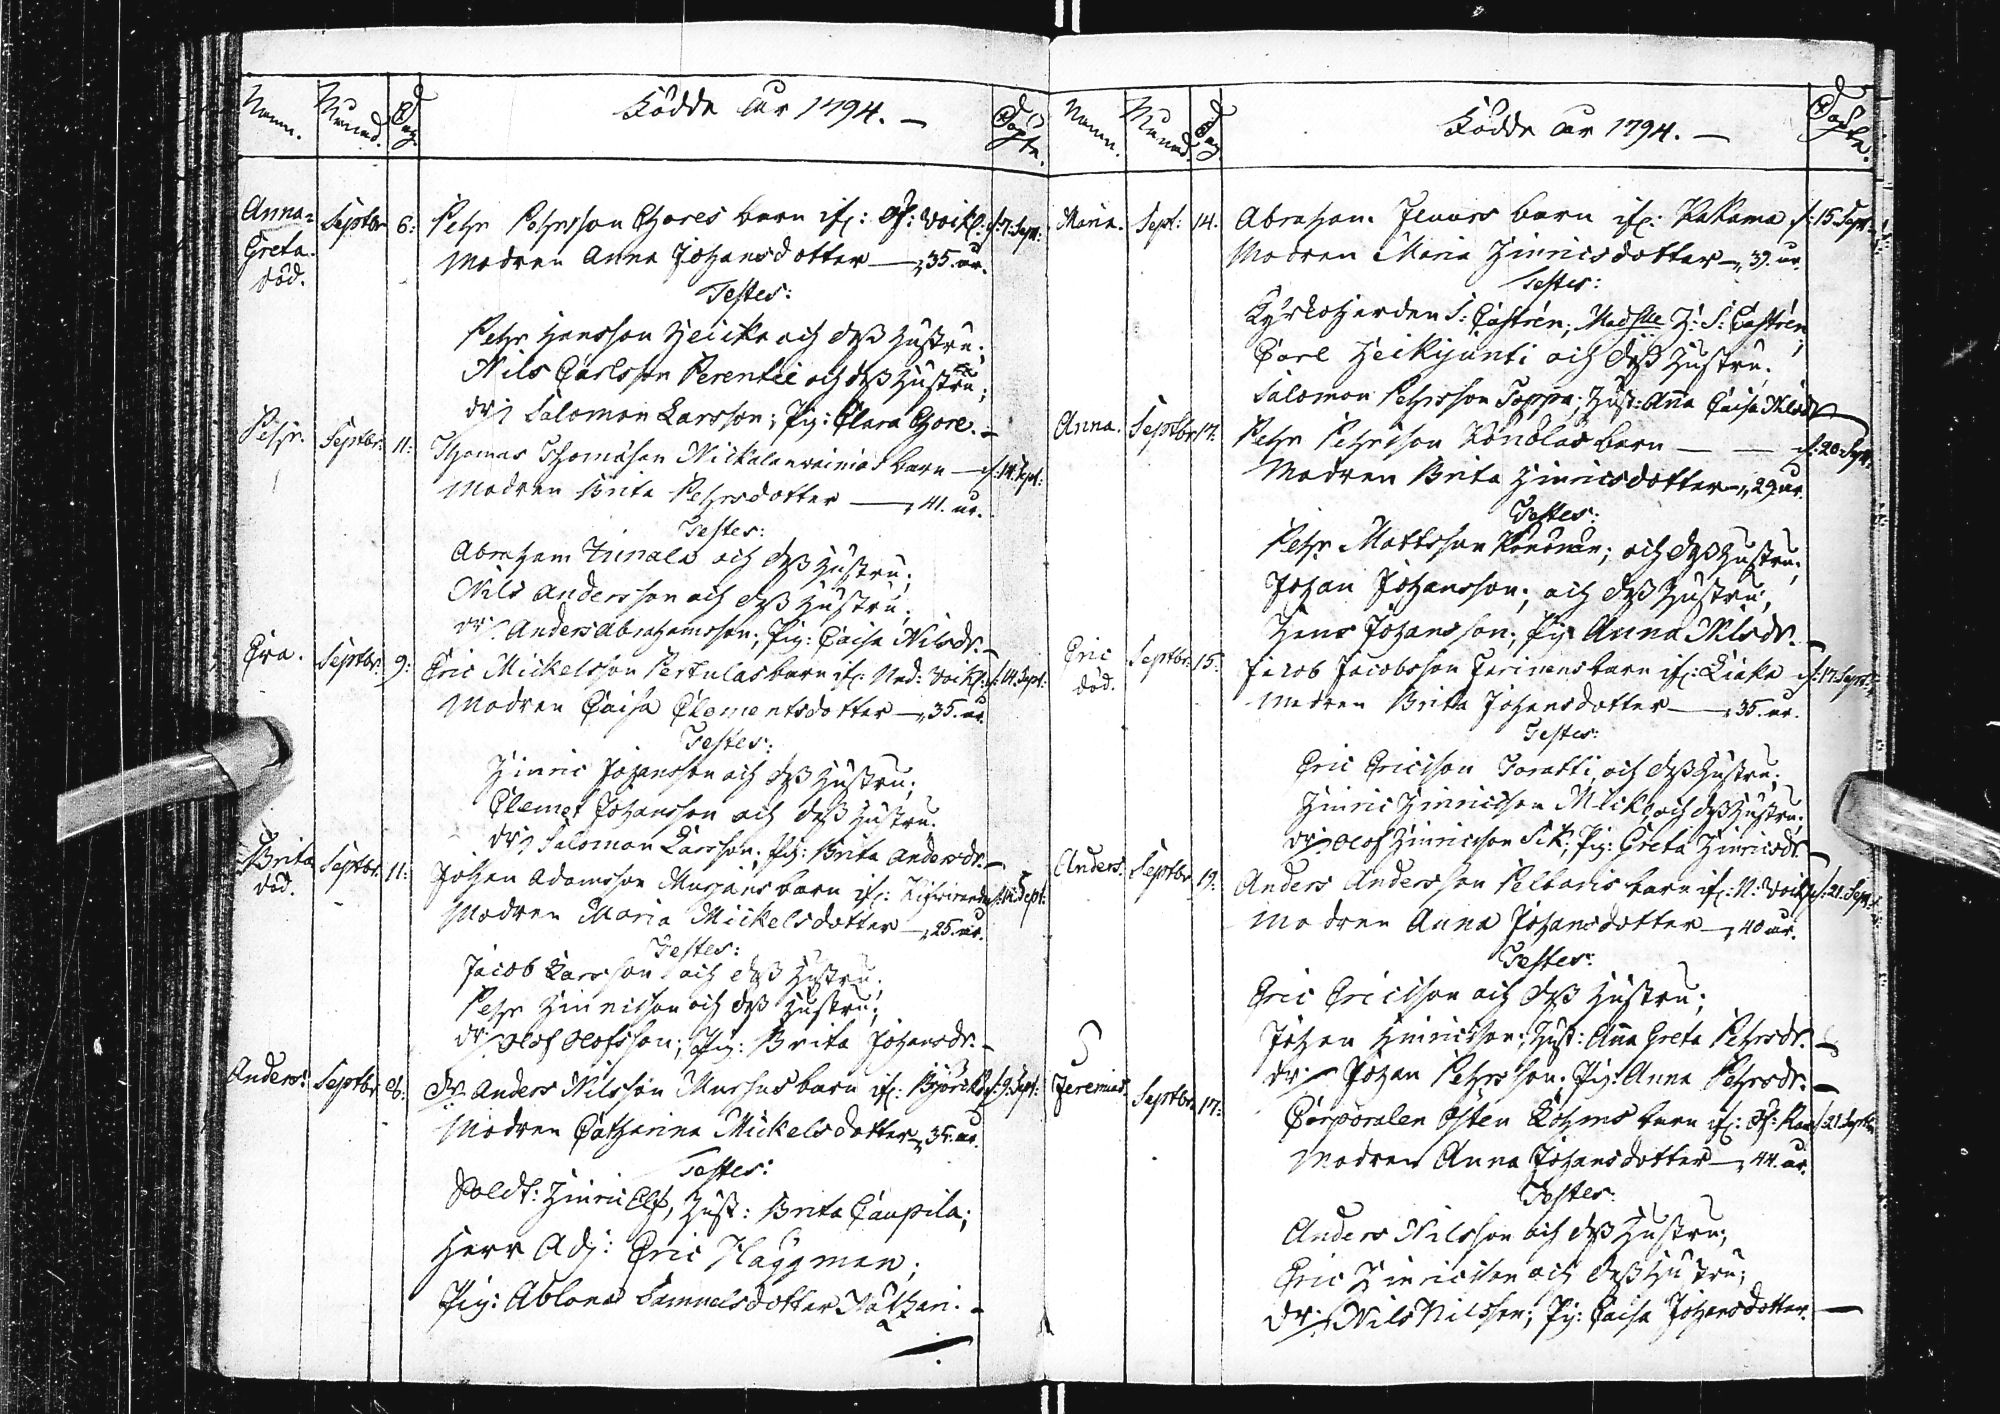 Namn. Månad. Dag. Födde år 1794. — Döpte.
Anna= Septbr 6: Pehr Pehrsson Thores barn ifr: Öf: Voikl: d: 7. Sept:
Greta. Modren Anna Johansdotter — 35. år.
död. Testes:
Pehr Hansson Heicka och dess hustru;
Nils Carlsson Perentie och dess hustru;
Dr: Salomon Larsson; Pig: Clara Thore. —
Pehr. Septbr. 11: Thomas Thomasson barn — d: 14. Sept:
Modren Brita Pehrsdotter — 41. år.
Testes:
Abraham och dess hustru;
Nils Andersson och dess hustru;
Dr: Anders Abrahamsson; Pig: Caisa Nilsdr. —
Eva. Septbr. 9: Eric Mickelsson Pertulas barn ifr: Ned: Voikl: d: 14. Sept:
Modren Caisa Clementsdotter — 35. år.
Testes:
Hinric Johansson och dess hustru;
Clemet Johansson och dess hustru.
Dr: Salomon Larsson; Pig: Brita Andersdr. —
Brita Septbr. 11: Johan Adamsson barn ifr: d: 14. Sept:
död. Modren Maria Mickelsdotter — 25. år.
Testes:
Jacob Larsson och dess hustru;
Pehr Hinricsson och dess hustru;
Dr: Olof Olofsson; Pig: Brita Johansdr. —
Anders. Septbr 6: Dr: Anders Nilsson barn ifr: d: 9. Sept:
Modren Catharina Mickelsdotter — 35. år.
Testes:
Soldt: Hinric Elf, Hust: Brita Caupila;
Herr Adj: Eric Häggman;
Pig: Ablona Samuelsdotter —
Namn. Månad. Dag. Födde år 1794. — Döpte.
Maria. Sept: 14. Abraham barn ifr: Kakama d: 15. Sept:
Modren Maria Hinricsdotter — 39. år.
Testes:
Kyrkoherden S: Castrén; Madslle H: S: Castrén
Carl Heikijunti och dess hustru.
Salomon Pehrsson Toppa; Hust: Anna Caisa Nilsdr
Anna. Septbr 17. Pehr Pehrsson barn — — d: 20. Sept.
Modren Brita Hinricsdotter — 29. år.
Testes:
Pehr Mattsson och dess hustru;
Johan Johansson; och dess hustru;
Hans Johansson; Pig: Anna Nilsdr. —
Eric Septbr. 15: Jacob Jacobsson barn ifr: Kiäkä d: 17. Sept:
död. Modren Brita Johansdotter — 35. år.
Testes:
Eric Ericsson Toratti, och dess hustru;
Hinric Hinricsson och dess hustru;
Dr: Olof Hinricsson Sik; Pig: Greta Hinricsdr. —
Anders. Septbr 19: Anders Andersson barn ifr: N: Voikl: d: 21. Sept:
Modren Anna Johansdotter — 40 år.
Testes:
Eric Ericsson och dess hustru;
Johan Hinricsson; Hust: Anna Greta Pehrsdr. —
Dr: Johan Pehrsson. Pig: Anna Pehrsdr. —
Jeremias. Septbr. 17: Corporalen Östen barn ifr: Öf: d: 21. Septbr
Modren Anna Johansdotter — 44. år.
Testes:
Anders Nilsson och dess hustru;
Eric Hinricsson och dess hustru;
Dr: Nils Nilsson; Pig: Caisa Johansdotter. —